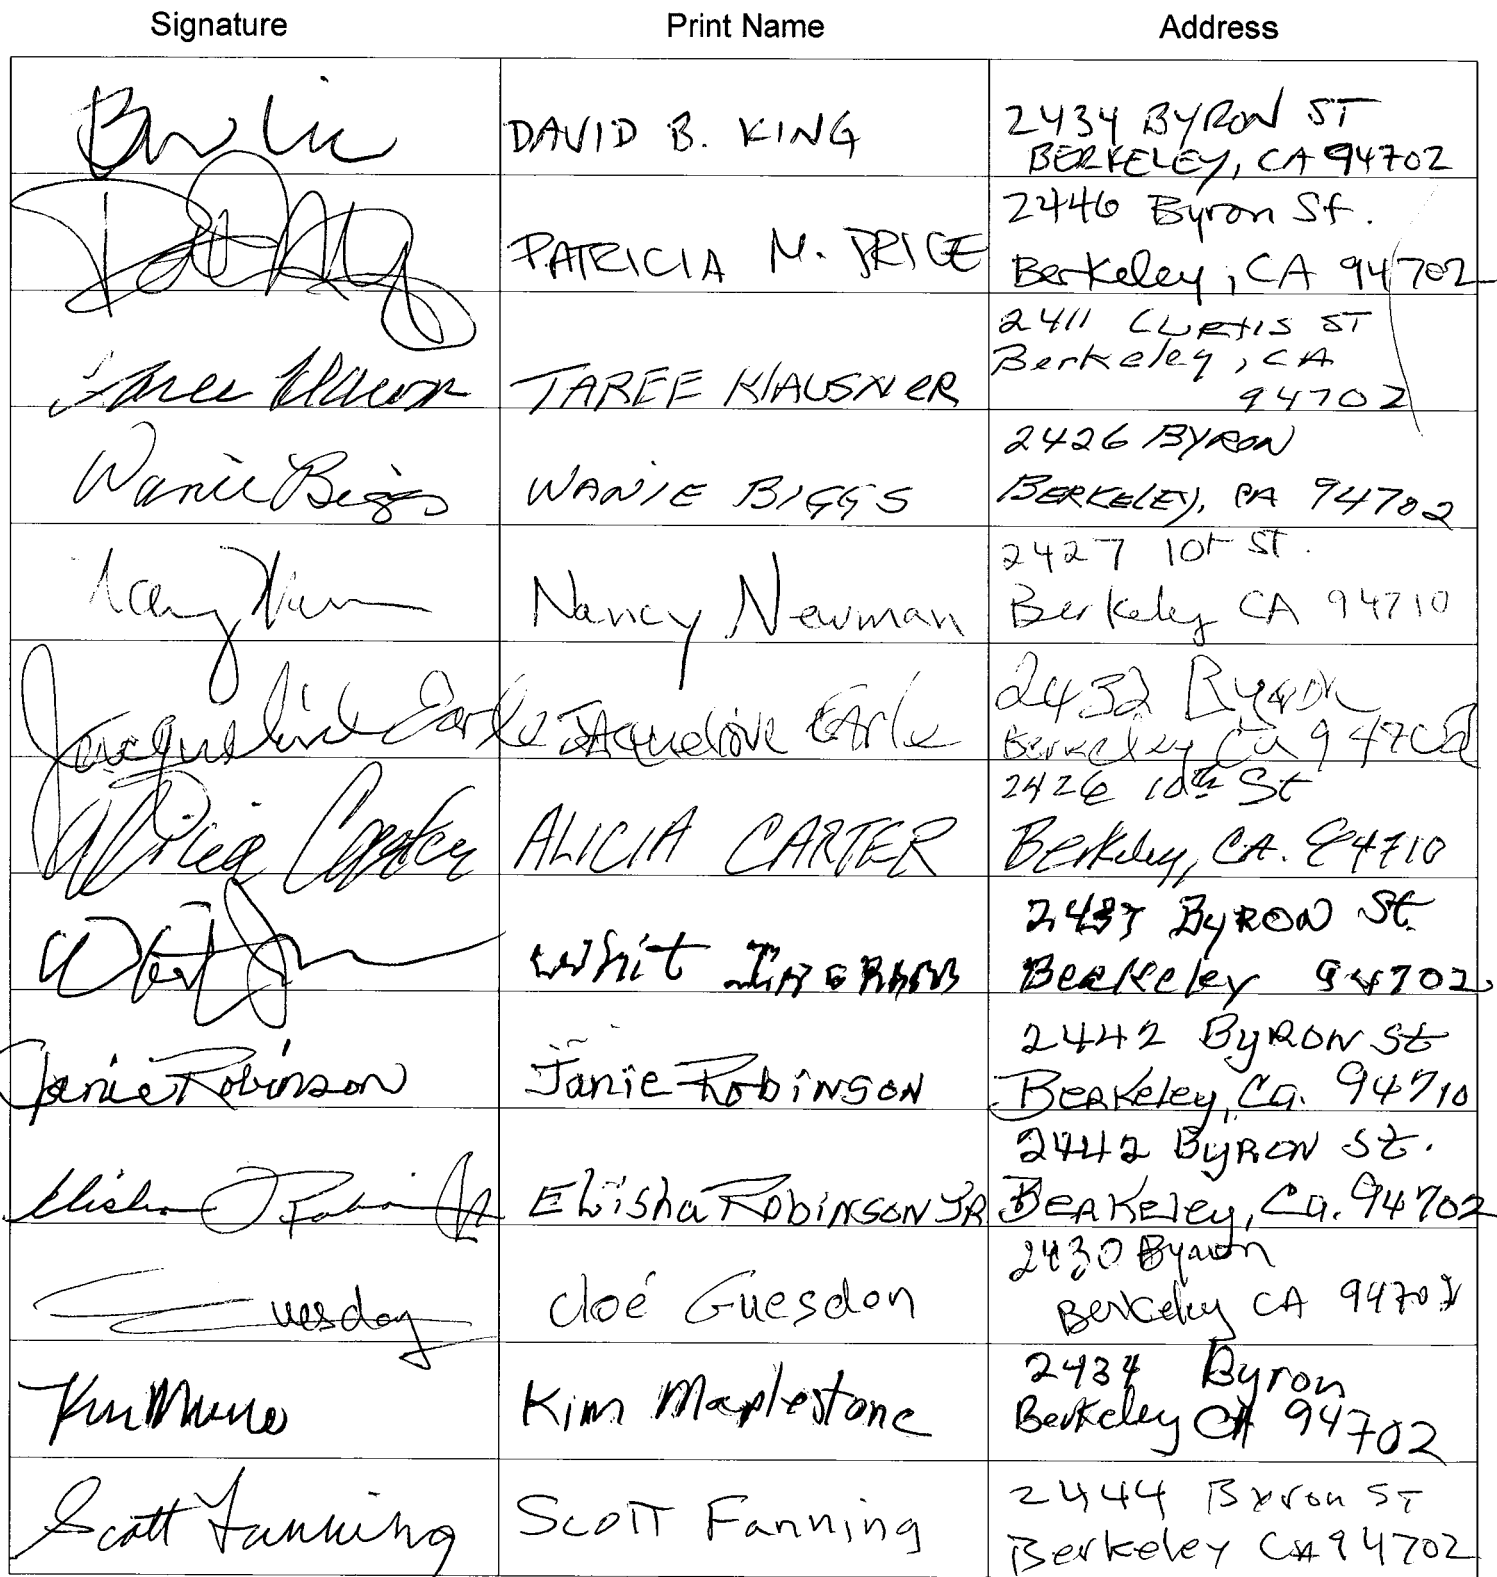 Signature Print Name Address
DAVID B. KING
2434 BYRON ST
BERKELEY, CA 94702
PATRICIA M. PRICE
2446 Byron St.
Berkeley, CA 94702
TAREE KlAUSNeR
2411 CURtIS ST
Berkeley, CA
94702
Wanie Biggs
WANIE BIGGS
2426 BYRON
BERKELEY, CA 94702
Nancy Newman
2427 10th St.
Berkeley CA 94710
Jacqueline Earle
Jacqueline Earle
2432 Byron
Berkeley Ca 94702
Alicia Carter
ALICIA CARTER
2426 10th St
Berkeley, CA. 94710
Whit INGRAM
Byron St.
Berkeley 94702
Janie Robinson
Janie Robinson
2442 Byron St
Berkeley, Ca. 94710
Elisha Robinson JR
2442 Byron St.
Berkeley, Ca. 94702
Guesdon
Cloé Guesdon
2430 Byron
Berkeley CA 94702
Kim Maplestone
2434 Byron
Berkeley CA 94702
Scott Fanning
Scott Fanning
2444 Byron ST
Berkeley CA 94702